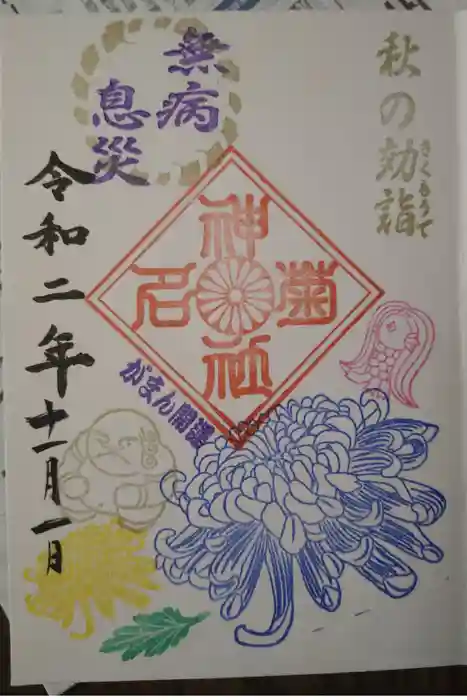 秋の効詣
きくもうで
無病
息災
菊名
神社
がまん開運
令和二年十一月一日